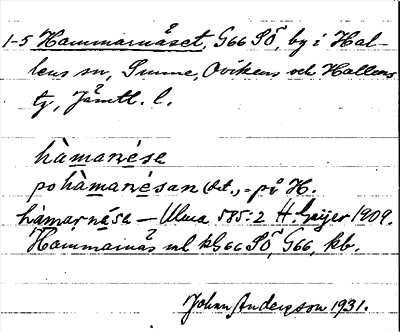 1-5 Hammarnåset, G66 SÖ, by i Hal-
lens sn, Sunne, Ovikens och Hallens
tg, Jämtl. l.
hàmanése
po hàmanésan (dat.) = på H.
hàmarnáse — Ulma 585:2 H. Geijer 1909.
Hammarnås ml kG66 SÖ, G66, kb.
Johan Anderson 1931.